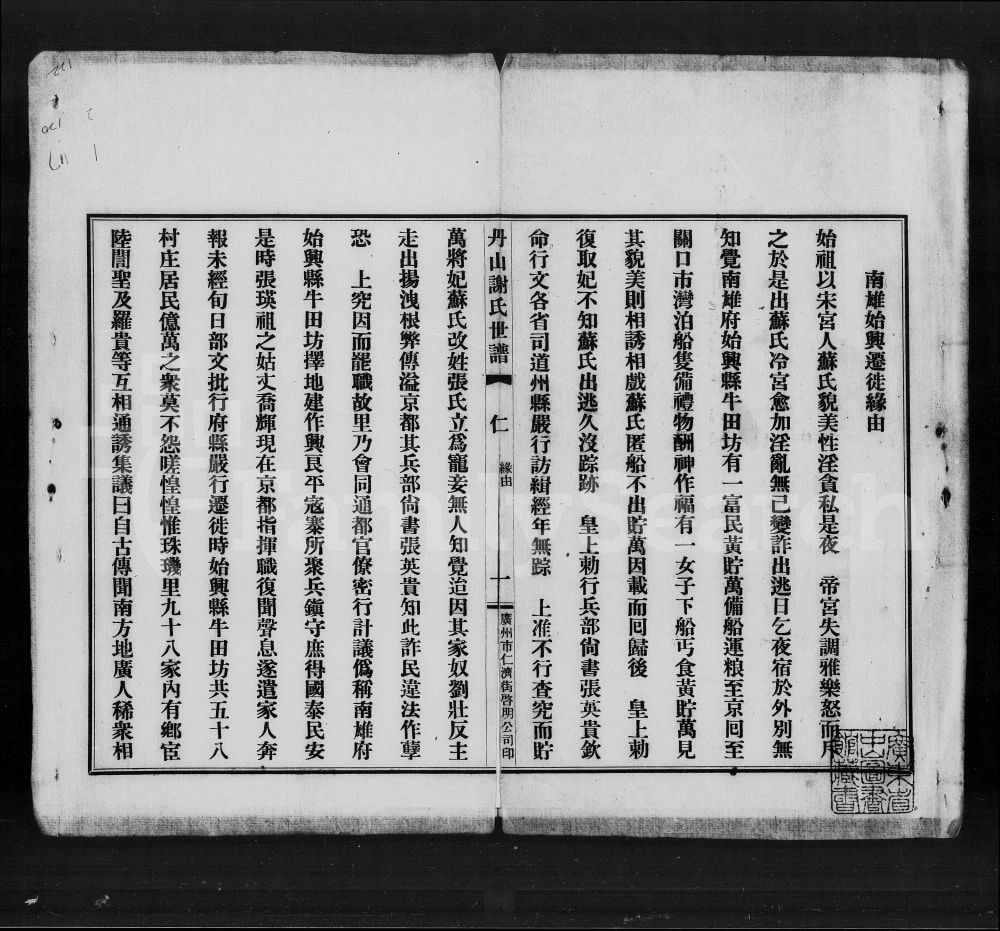 南雄始興遷徙緣由
始祖以宋宮人蘇氏貌美性淫貪私是夜　帝宮失調雅樂怒而斥
之於是出蘇氏冷宮愈加淫亂無己變詐出逃日乞夜宿於外別無
知覺南雄府始興縣牛田坊有一富民黃貯萬備船運粮至京囘至
關口市灣泊船隻備禮物酬神作福有一女子下船丐食黃貯萬見
其貌美則相誘相戲蘇氏匿船不出貯萬因載而囘歸後　皇上勅
復取妃不知蘇氏出逃久沒踪跡　皇上勅行兵部尙書張英貴欽
命行文各省司道州縣嚴行訪緝經年無踪　上准不行查究而貯
丹山謝氏世譜　仁　緣由　一　廣州市仁濟街啓明公司印
萬將妃蘇氏改姓張氏立爲寵妾無人知覺迨因其家奴劉壯反主
走出揚洩根弊傳溢京都其兵部尙書張英貴知此詐民違法作孽
恐　上究因而罷職故里乃會同通都官僚密行計議僞稱南雄府
始興縣牛田坊擇地建作興良平寇寨所聚兵鎭守庶得國泰民安
是時張瑛祖之姑丈喬輝現在京都指揮職復聞聲息遂遣家人奔
報未經旬日部文批行府縣嚴行遷徙時始興縣牛田坊共五十八
村庄居民億萬之衆莫不怨嗟惶惶惟珠璣里九十八家內有鄕宦
陸誾聖及羅貴等互相通誘集議曰自古傳聞南方地廣人稀衆相
廣東省
中山圖書
館藏書
FamilySearch